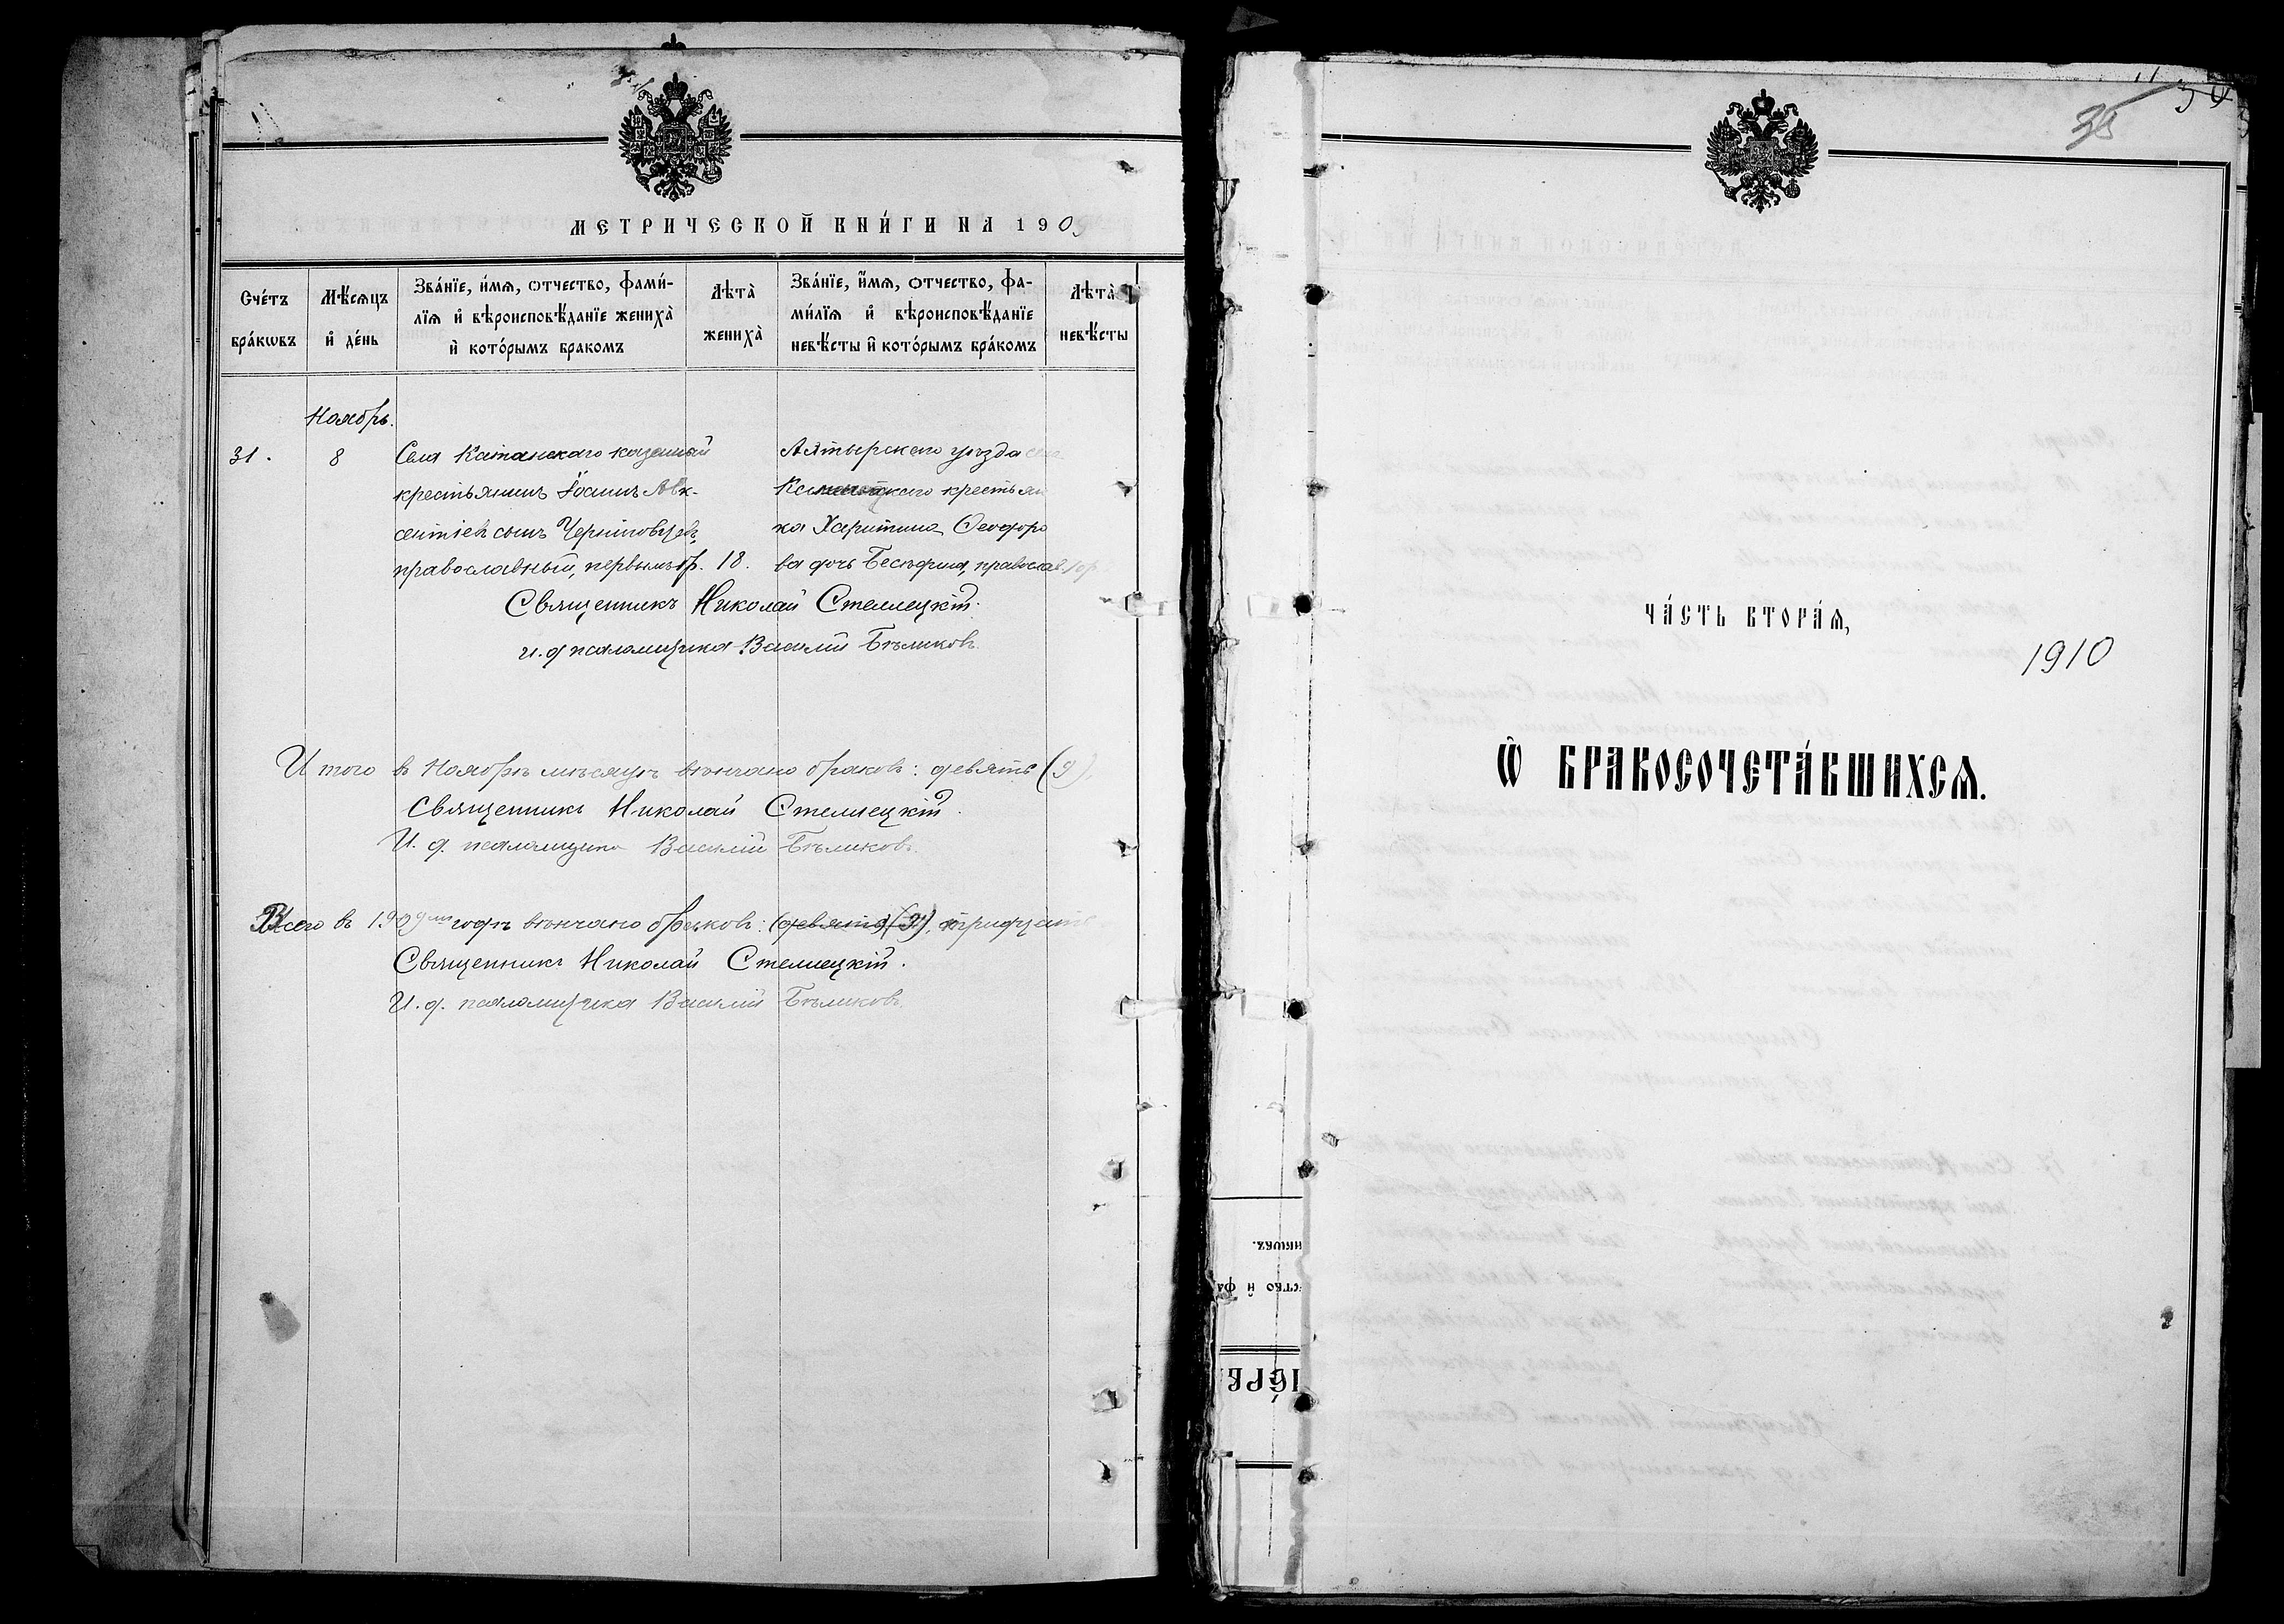 МЕТРИЧЕСКОЙ КНИ́ГИ НА 1909
Сче́тъ бра́кωвъ
Мѣ́сѧцъ и҆ де́нь
Зва́нїе, и҆́мѧ, ѻтчество, фами́-
лїѧ и҆ вѣроисповѣ́данїе жениха̀
и҆ кото́рымъ бракомъ
Лѣта̀ жениха̀
Зва́нїе, и҆́мѧ, ѻтчество, фа-
ми́лїѧ и҆ вѣроисповѣ́данїе
невѣ́сты и҆ кото́рымъ бра́комъ
Лѣта̀ невѣ́сты
Ноябрь.
31. 8
Села Катанскаго казенный
крестьянинъ Іоаннъ Авк-
сентіевъ сынъ
православный, первымъ бр. 18.
Ахтырскаго уѣзда
крестьян
ка Харитина Ѳеодоро
ва дочь православ.
Священникъ Николай Стеллецкій.
и. д псаломщика Василій Бѣликовъ.
Итого в Ноябрѣ мѣсяцѣ вѣнчано браковъ: девять (9),
Священникъ Николай Стеллецкій.
И. д. псаломщика Василій Бѣликовъ.
Всего въ 1909 годѣ вѣнчано браковъ: (девять) (9), тридцать
Священникъ Николай Стеллецкій.
И. д. псаломщика Василій Бѣликовъ.
35
ЧА́СТЬ ВТОРА́Ѧ,
1910
Ѽ БРАКОСОЧЕТА́ВШИХСѦ.